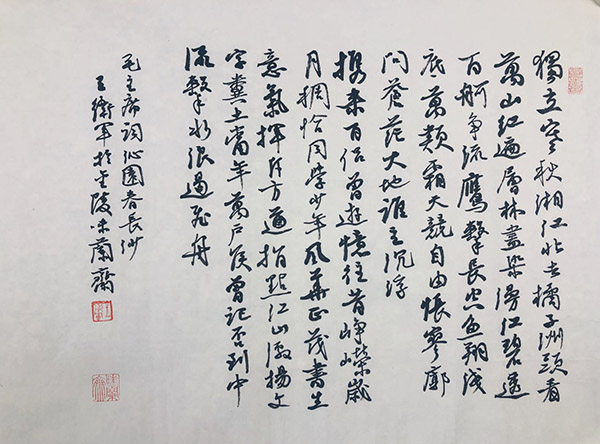 獨立寒秋湘江北去橘子洲頭看
萬山紅遍層林盡染漫江碧透
百舸争流鷹擊長空魚翔淺
底萬類霜天競自由悵寥廓
問蒼茫大地誰主沉浮
携来百侣曾遊憶往昔崢嶸歲
月稠恰同學少年風華正茂書生
意氣揮斥方遒指點江山激揚文
字糞土當年萬户侯曾記否到中
流擊水浪遏飛舟
毛主席詞沁園春長沙
王衛軍於金陵味蘭齋